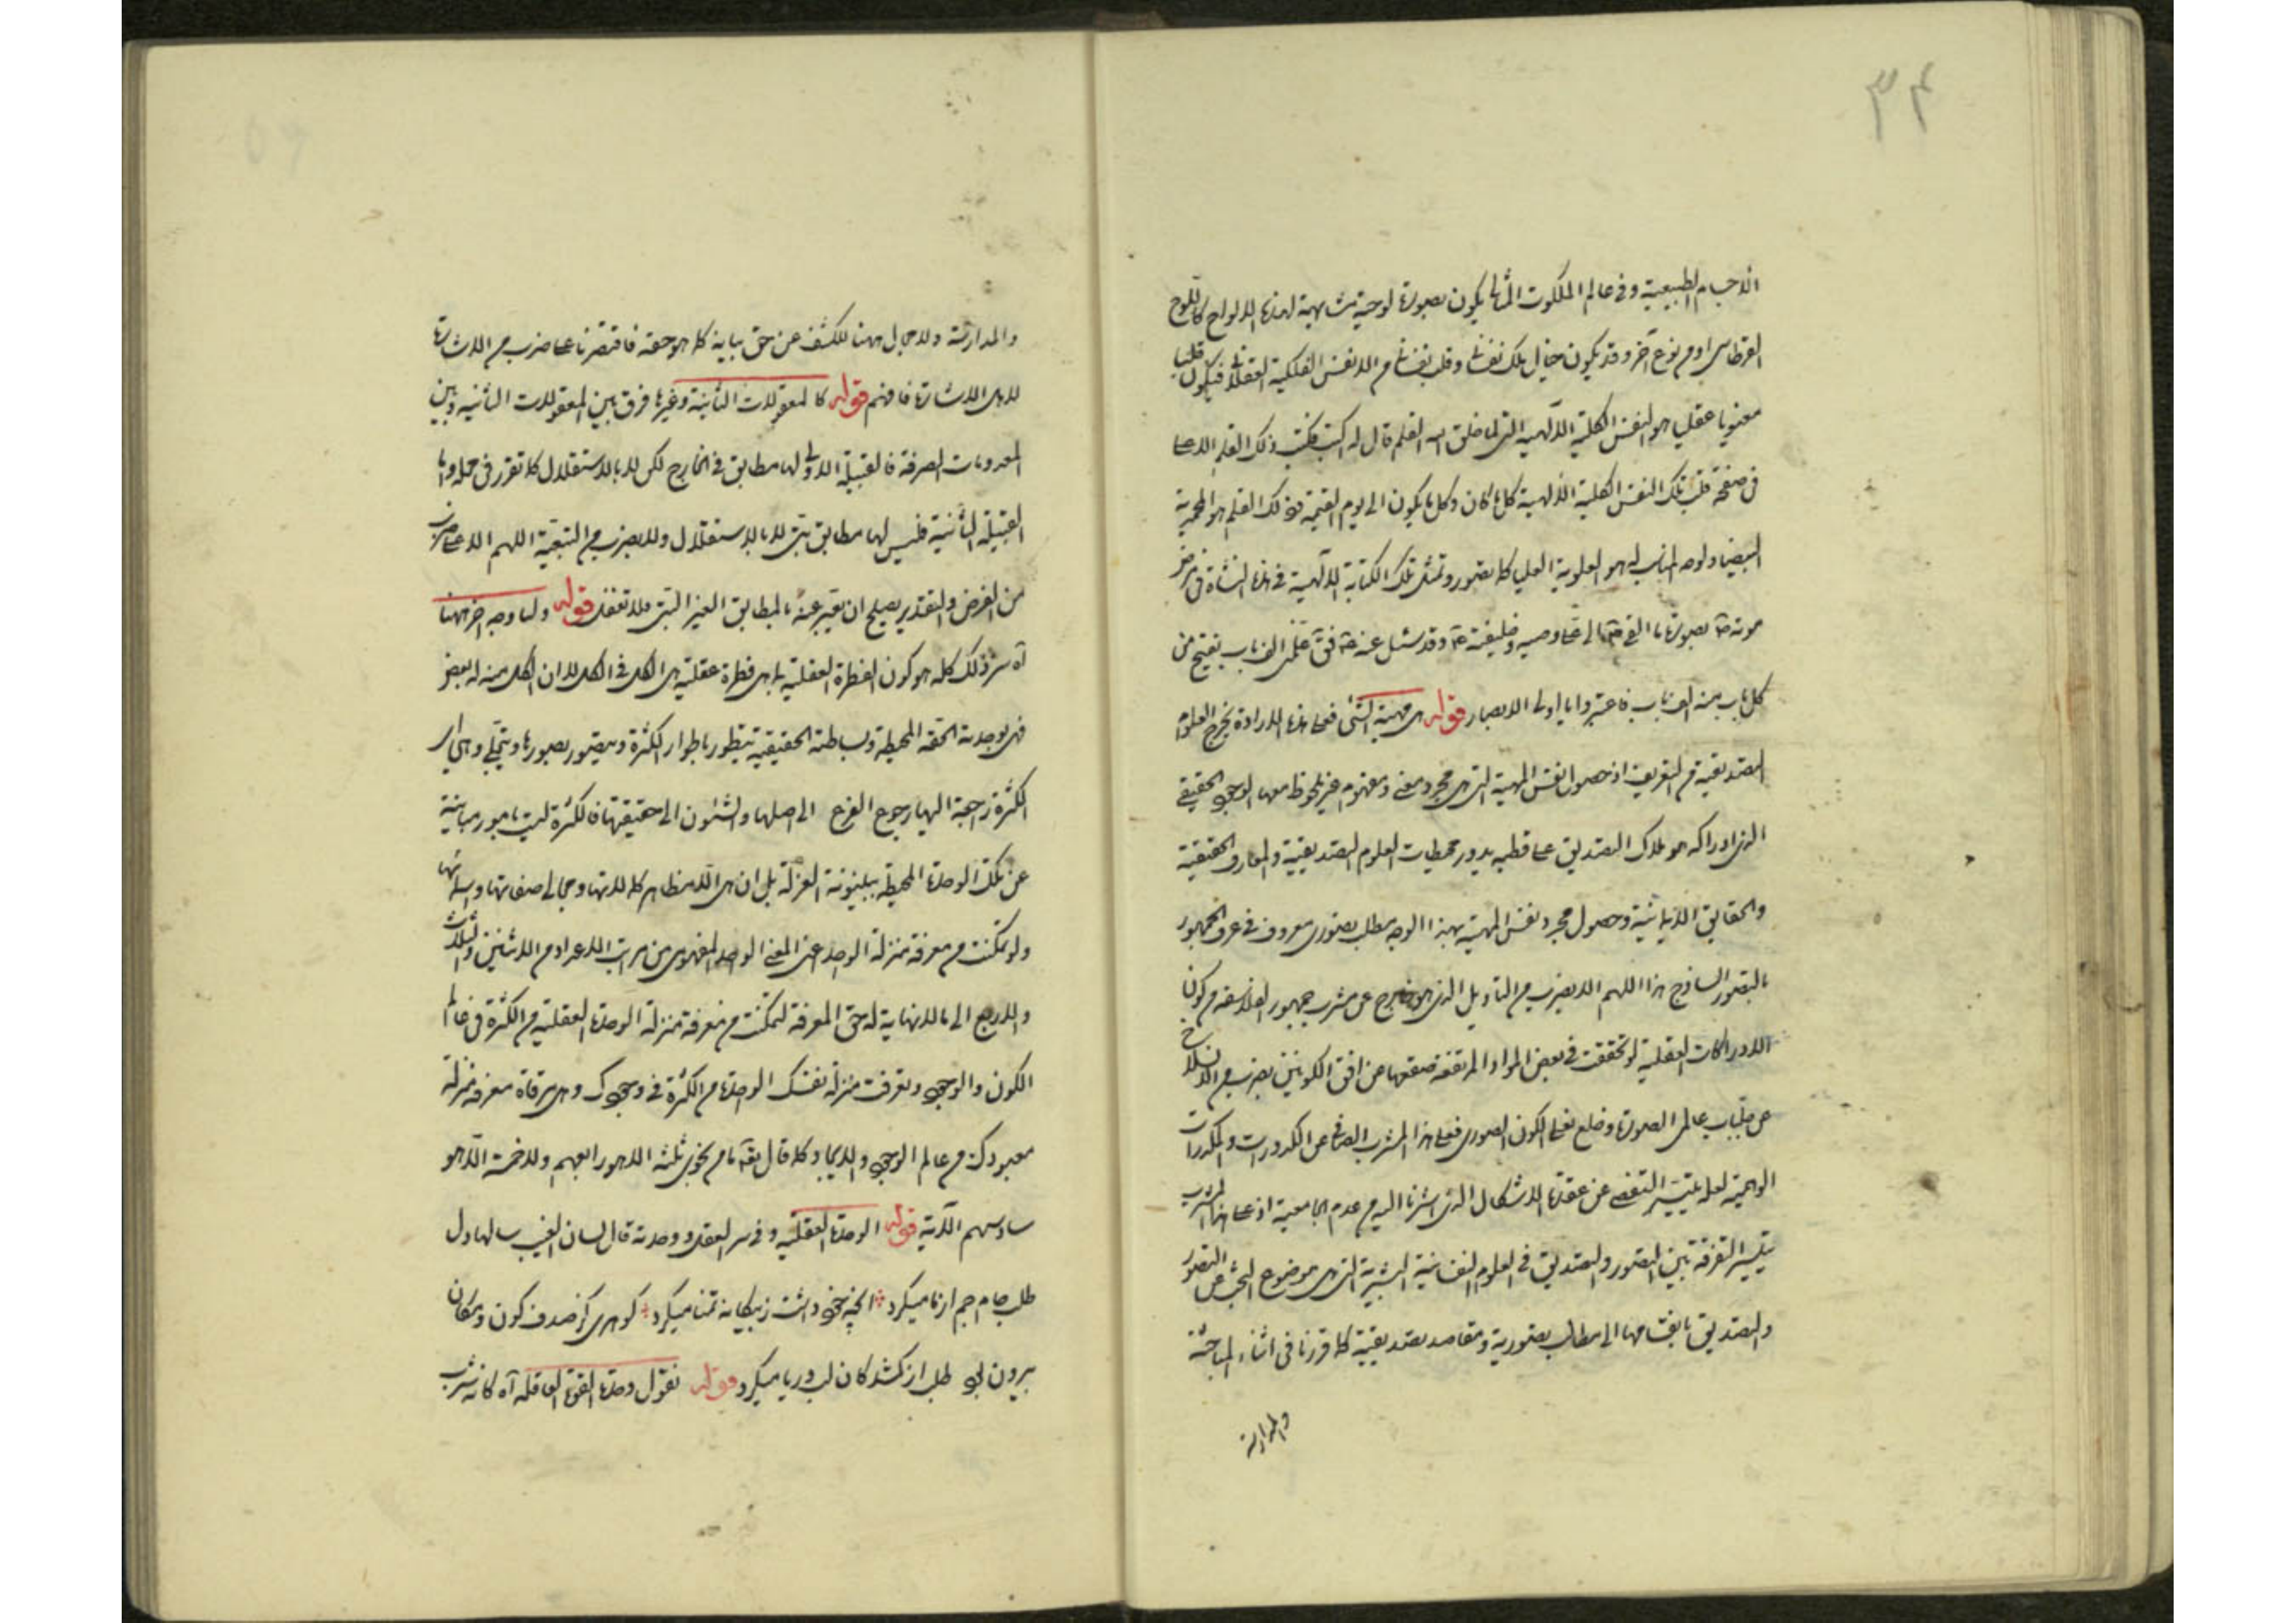 ۳۴
الاجسام الطبيعية وفى عالم الملكوت المثالى يكون بصورة لوحية مشابهة لهذه الالواح كاللوح
القرطاسى او من نوع آخر وقد يكون خيال ملك نفسانى وقلب نفسانى من الانفس الفلكية العقلانية فيكون قلبا
معنويا عقليا هو النفس الكلية الالهية التى لما خلق الله القلم قال له اكتب فكتب ذلك القلم الاعلى
فى صفحة قلب تلك النفس الكلية الالهية كل ما كان وكل ما يكون الى يوم القيمة فذلك القلم هو المحمدية
البيضاء ولوحه المناسب له هو العلوية العليا كما تصور وتمثل تلك الكتابة الالهية فى هذه النشاة فى مرض
موته ص بصورة ما القى ص الى على وصيه وخليفته ع وقد سئل عنه ع فق علمنى الف باب يفتح من
كل باب منه الف باب فاعتبروا يا اولى الابصار قوله هى مهية الشئ فعلى هذه الارادة يخرج العلوم
التصديقية من التعريف اذ حصول نفس المهية التى هى مجرد معنى ومفهوم غير ملحوظ معها الوجود الحقيقى
الذى ادراكه هو ملاك التصديق على قطبه يدور محيطات العلوم التصديقية والمعارف الحقيقية
والحقايق الايمانية وحصول مجرد نفس المهية بهذا الوجه مطلب تصورى معروف فى عرف الجمهور
بالتصور الساذج هذا اللهم الا بضرب من التأويل الذى هو خارج عن مشرب جمهور الفلاسفة من كون
الادراكات العقلية لو تحققت فى بعض المواد المرتفعة صقعها من افق الكونين بضرب من الانسلاخ
عن جلباب عالمى الصورة وخلع نعلى الكون الصورى فعلى هذا المشرب الصافى عن الكدورات والمكدرات
الوهمية لعله يتيسر التفصى عن عقدة الاشكال الذى اشرنا اليه من عدم الجامعية اذ على هذا المشرب
يتيسر التفرقة بين التصور والتصديق فى العلوم النفسانية البشرية التى هى موضوع البحث عن التصور
والتصديق بانقسامها الى مطالب تصورية ومقاصد تصديقية كما قررنا فى اثناء المباحثة
والمدارسة
والمدارسة ولا مجال ههنا للكشف عن حق بيانه كما هو حقه فاقتصرنا على ضرب من الاشارة
لاهل الاشارة فافهم قوله كالمعقولات الثانية وغيرها فرق بين المعقولات الثانية وبين
المعدومات الصرفة فالقبيلة الاولى لها مطابق فى الخارج لكن لا بالاستقلال كما تقرر فى محله واما
القبيلة الثانية فليس لها مطابق بتى لا بالاستقلال ولا بضرب من التبعية اللهم الا على ضرب
من الفرض والتقدير يصلح ان يعبر عنه بالمطابق الغير البتى فلا تغفل قوله ولنا وجه اخر ههنا
آه سر ذلك كله هو كون الفطرة العقلية بما هى فطرة عقلية هى الكل فى الكل لا ان الكل منه له بعض
فهى بوحدته الحقه المحيطة وبساطته الحقيقية يتطور باطوار الكثرة ويتصور بصورها ويتجلى وهى اى
الكثرة راجعة اليها رجوع الفرع الى اصلها والشئون الى حقيقتها فالكثرة ليست بامور مباينة
عن تلك الوحدة المحيطة ببينونة العزلة بل ان هى الا مظاهر كمالاتها ومجالى صفاتها واسمائها
ولو تمكنت من معرفة منزلة الواحد اعنى المعنى الواحد المفهومى من مراتب الاعداد من الاثنين والثلاث
والاربع الى ما لا نهاية له حق المعرفة لتمكنت من معرفة منزلة الوحدة العقلية من الكثرة فى عالم
الكون والوجود وتعرفت منزلة نفسك الواحدة من الكثرة فى وجودك وهى مرقاة معرفة منزلة
معبودك من عالم الوجود والايجاد كما قال تعه ما من نجوى ثلثة الا هو رابعهم ولا خمسة الا هو
سادسهم الآية قوله الوحدة العقلية وفى سر العقل ووحدته قال لسان الغيب سالها دل
طلب جام جم از ما ميكرد آنچه خود داشت ز بيگانه تمنا ميكرد گوهرى كز صدف كون ومكان
بيرون بود طلب از گمشدگان لب دريا ميكرد قوله نقول وحدة القوة العاقلة آه كانه شرب